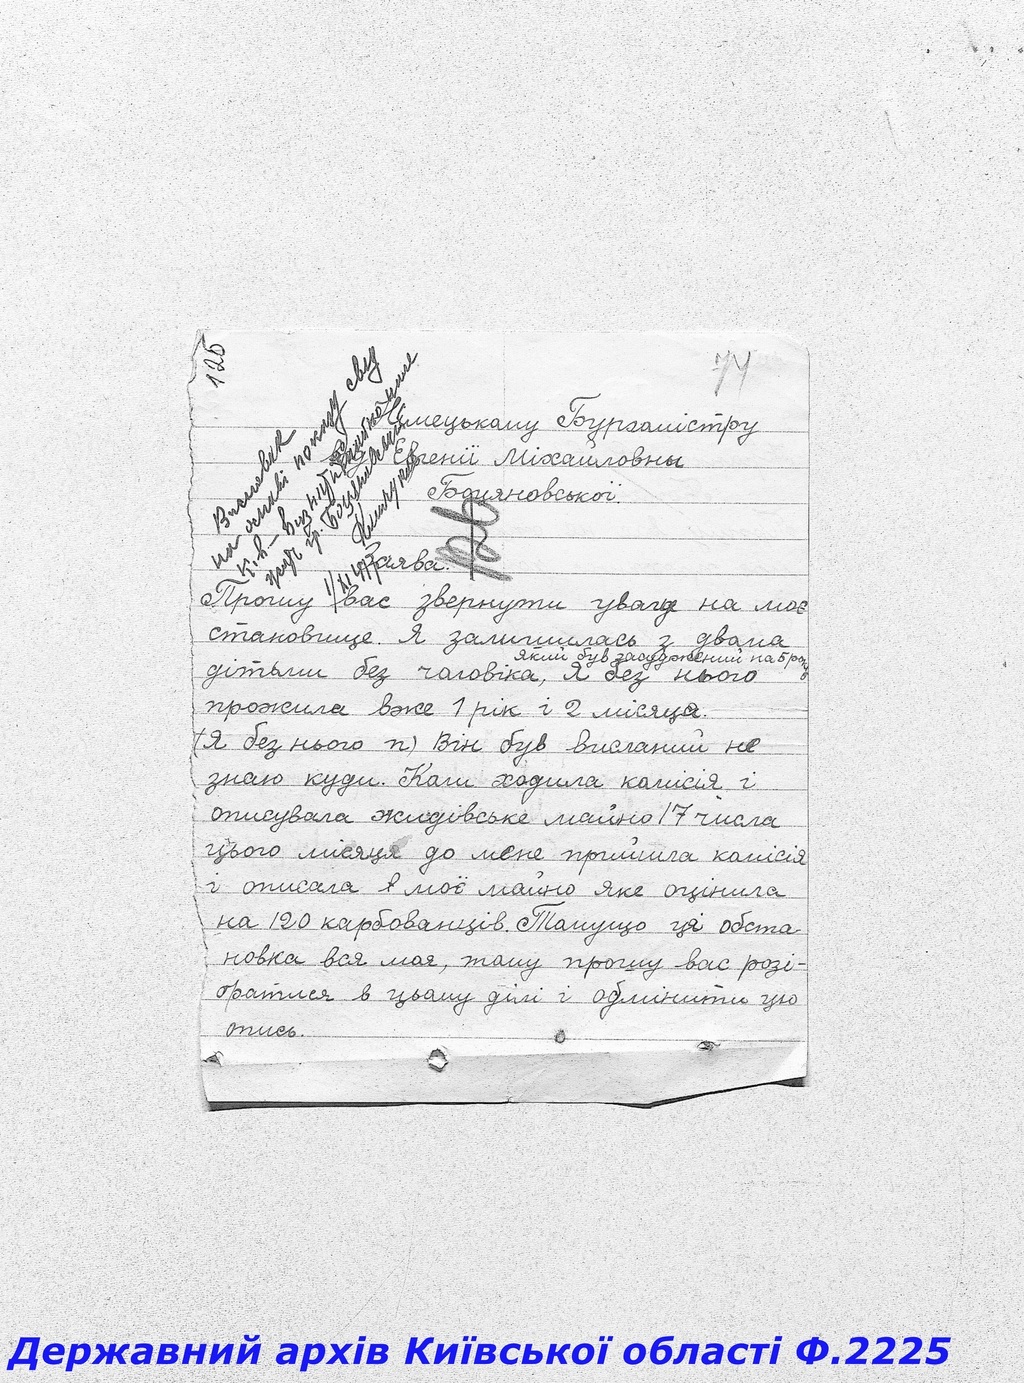 126
74
Німецькому Бургамістру
Евгенії Міхайловны
Бояновської.
Заява.
Прошу вас звернути увагу на моє
становище. Я залишилась з двома
який був засуджений на 5 ро
дітьми без чаловіка, Я без нього
прожила вже 1 рік і 2 місяца.
(Я без нього п) Він був висланий не
знаю куди. Кали ходила камісія і
описувала жидівське майно 17 числа
цього місяця до мене прийшла камісія
і описала і моє майно яке оцінила
на 120 карбованців. Тамущо ця обста-
новка вся моя, таму прошу вас розі-
братися в цьому ділі і обмінити цю
опись.
Державний архів Київської області Ф.2225